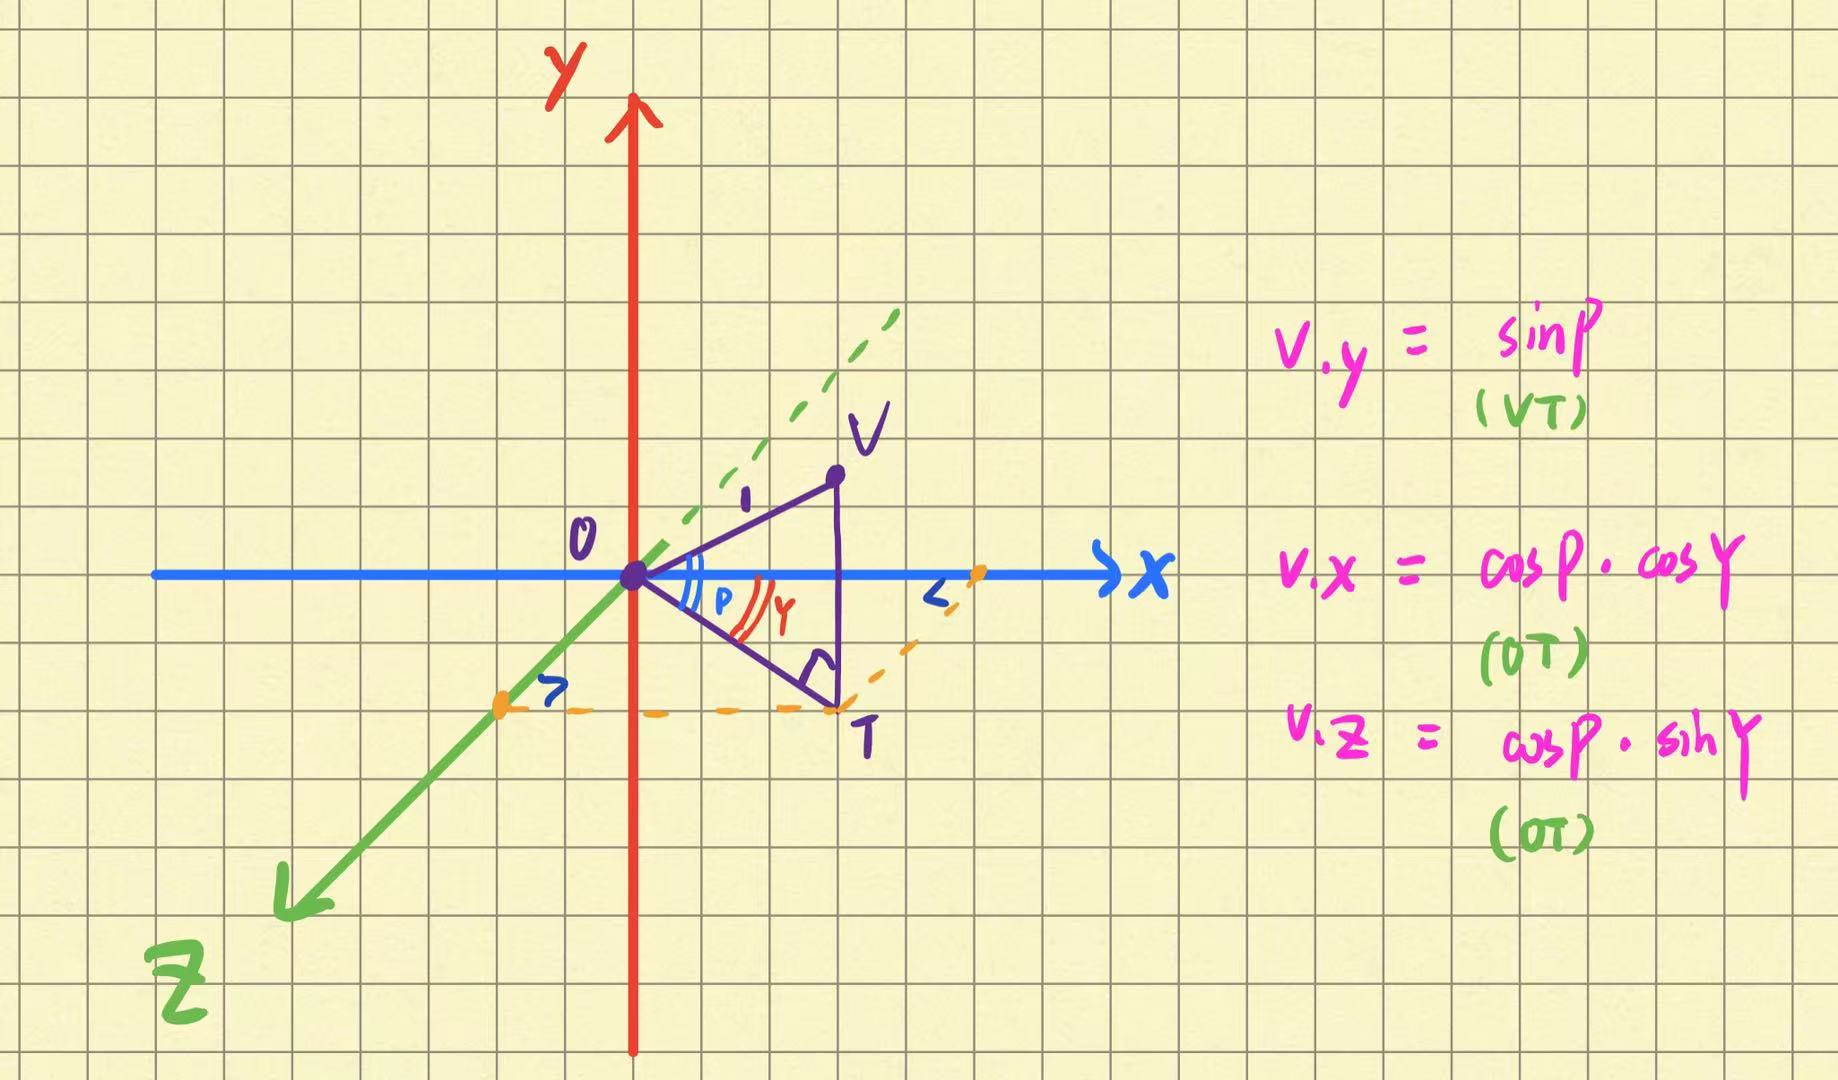 Y
V
1
O
X
P
Y
T
Z
V.y = sinP
(VT)
V.X = cosP · cosY
(OT)
V.Z = cosP · sinY
(OT)